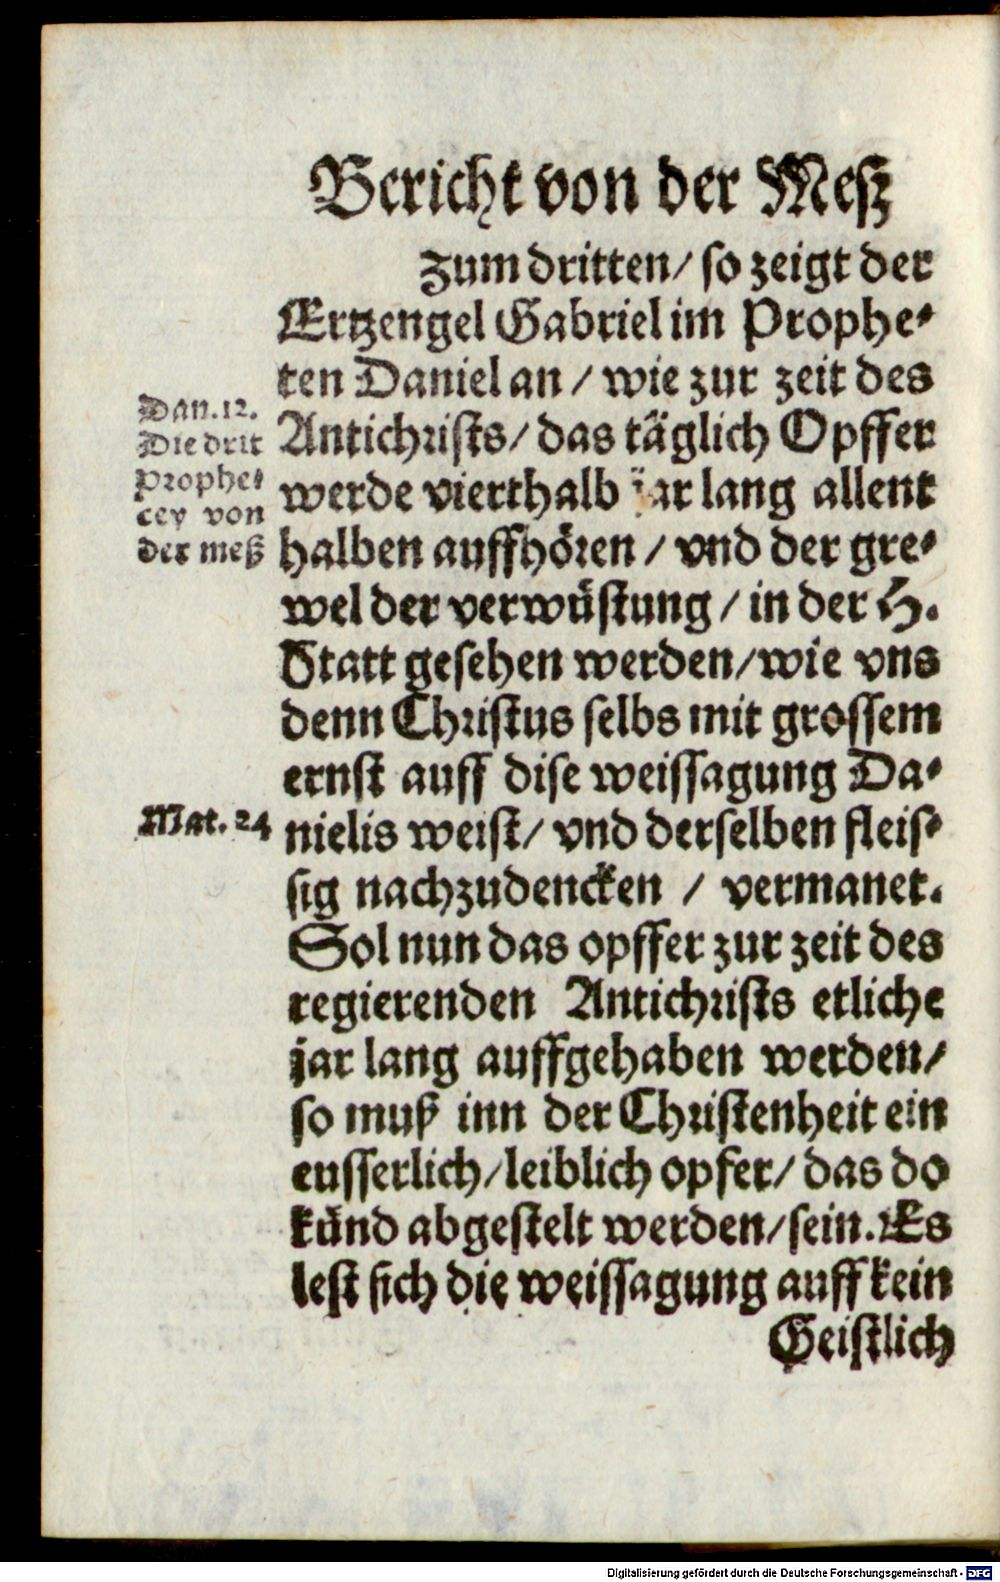 Bericht von der Meß
Zum dritten/ so zeigt der
Ertzengel Gabriel im Prophe⸗
ten Daniel an / wie zur zeit des
Dan. 12.
Die drit
Prophe⸗
cey von
der meß
Antichrists/ das täglich Opffer
werde vierthalb jar lang allent
halben auffhören / vnd der gre⸗
wel der verwüstung / in der H.
Statt gesehen werden/wie vns
denn Christus selbs mit grossem
ernst auff dise weissagung Da⸗
Mat. 24
nielis weist/ vnd derselben fleis⸗
sig nachzudencken / vermanet.
Sol nun das opffer zur zeit des
regierenden Antichrists etliche
jar lang auffgehaben werden/
so muß inn der Christenheit ein
eusserlich/leiblich opfer/ das do
künd abgestelt werden/sein. Es
lest sich die weissagung auff kein
Geistlich
Digitalisierung gefördert durch die Deutsche Forschungsgemeinschaft - DFG